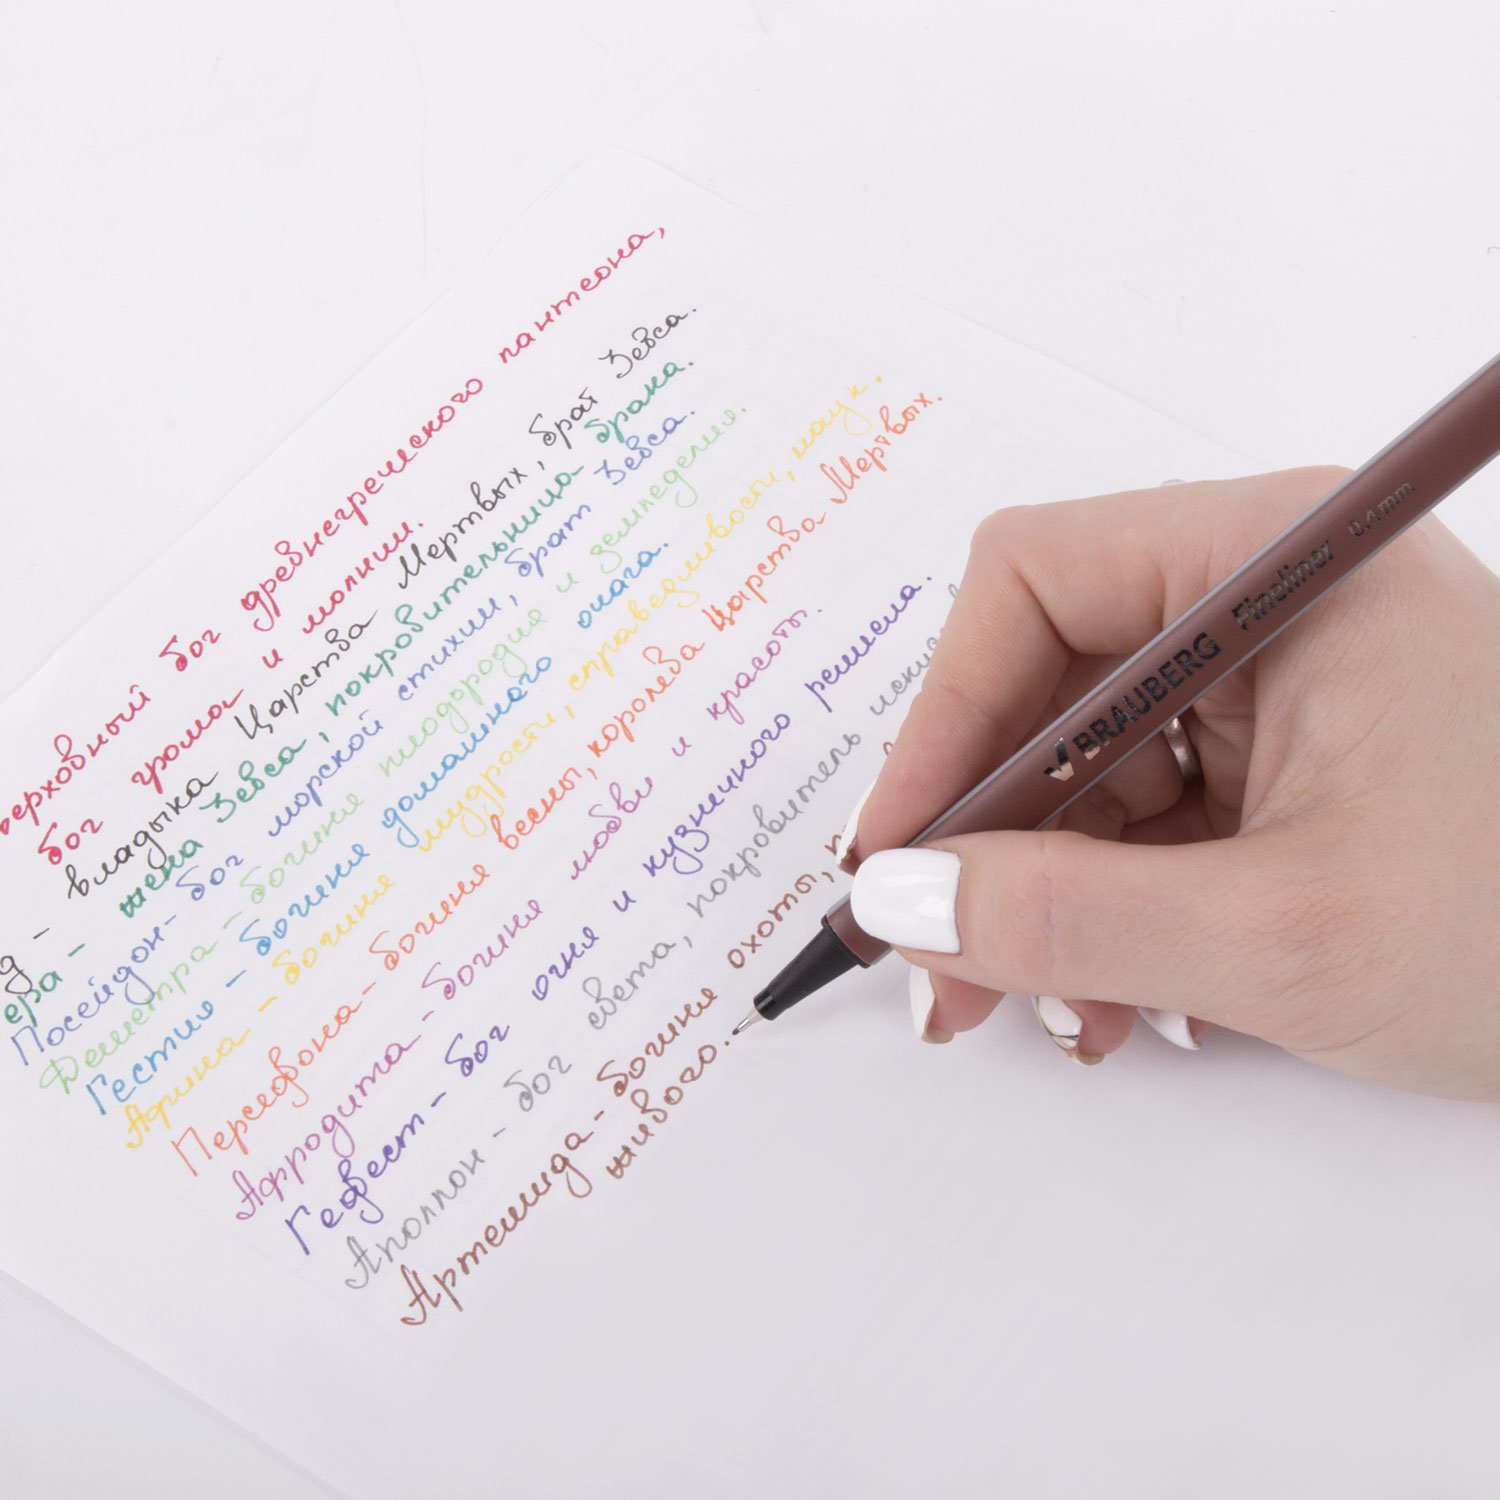 верховный бог древнегреческого пантеона,
бог грома и молнии.
д - владыка Царства Мертвых, брат Зевса.
ера - жена Зевса, покровительница брака.
Посейдон - бог морской стихии, брат Зевса.
Деметра - богиня плодородия и земледелия.
Гестия - богиня домашнего очага.
Афина - богиня мудрости, справедливости, наук.
Персефона - богиня весны, королева Царства Мертвых.
Афродита - богиня любви и красоты.
Гефест - бог огня и кузнечного ремесла.
Аполлон - бог света, покровитель
Артемида - богиня охоты,
живого.
BRAUBERG Fineliner 0,4mm